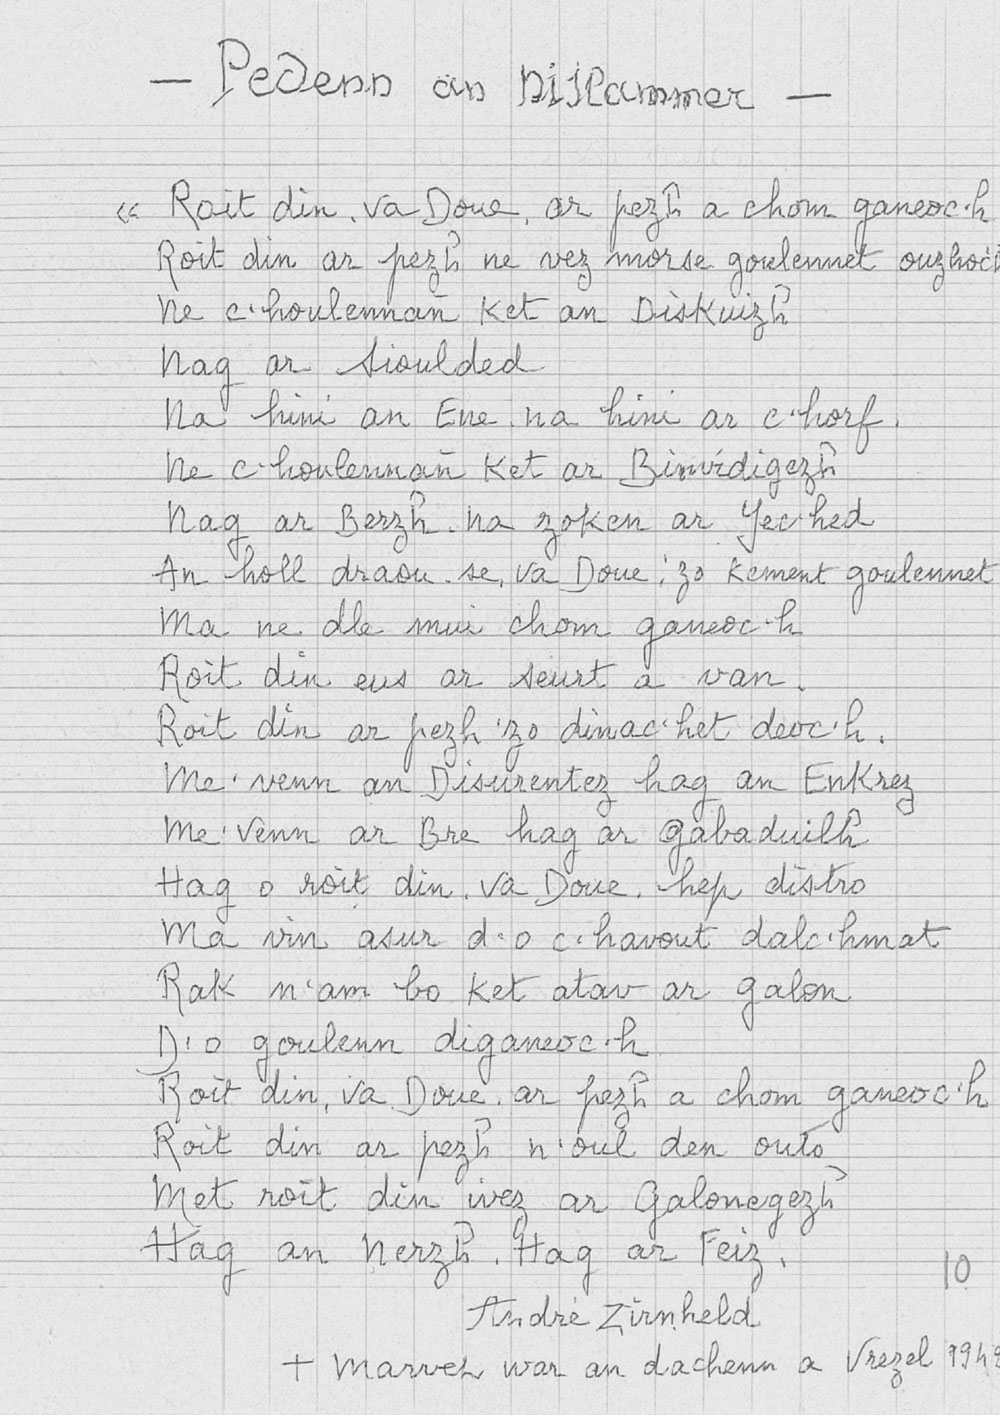 — Pedenn an Dislammer —
« Roit din, va Doue, ar pezh a chom ganeoc'h
Roit din ar pezh ne vez morse goulennet
Ne c'houlennañ ket an Diskuizh
Nag ar Sioulded
Na hini an Ene, na hini ar c'horf.
Ne c'houlennañ ket ar Binvidigezh
Nag ar Berzh, na zoken ar Yec'hed
An holl draou-se, va Doue, 'zo kement goulennet
Ma ne dle mui chom ganeoc'h
Roit din eus ar seurt a van.
Roit din ar pezh 'zo dinac'het deoc'h.
Me 'venn an Disurentez hag an Enkrez
Me 'venn ar Bre hag ar Gabaduilh
Hag o roit din, va Doue, hep distro
Ma vin asur d'o c'havout dalc'hmat
Rak n'am bo ket atav ar galon
D'o goulenn diganeoc'h
Roit din, va Doue, ar pezh a chom ganeoc'h
Roit din ar pezh n'oul den outo
Met roit din ivez ar Galonegezh
Hag an Nerzh. Hag ar Feiz.
10
André Zirnheld
+ Marvez war an dachenn a Vrezel